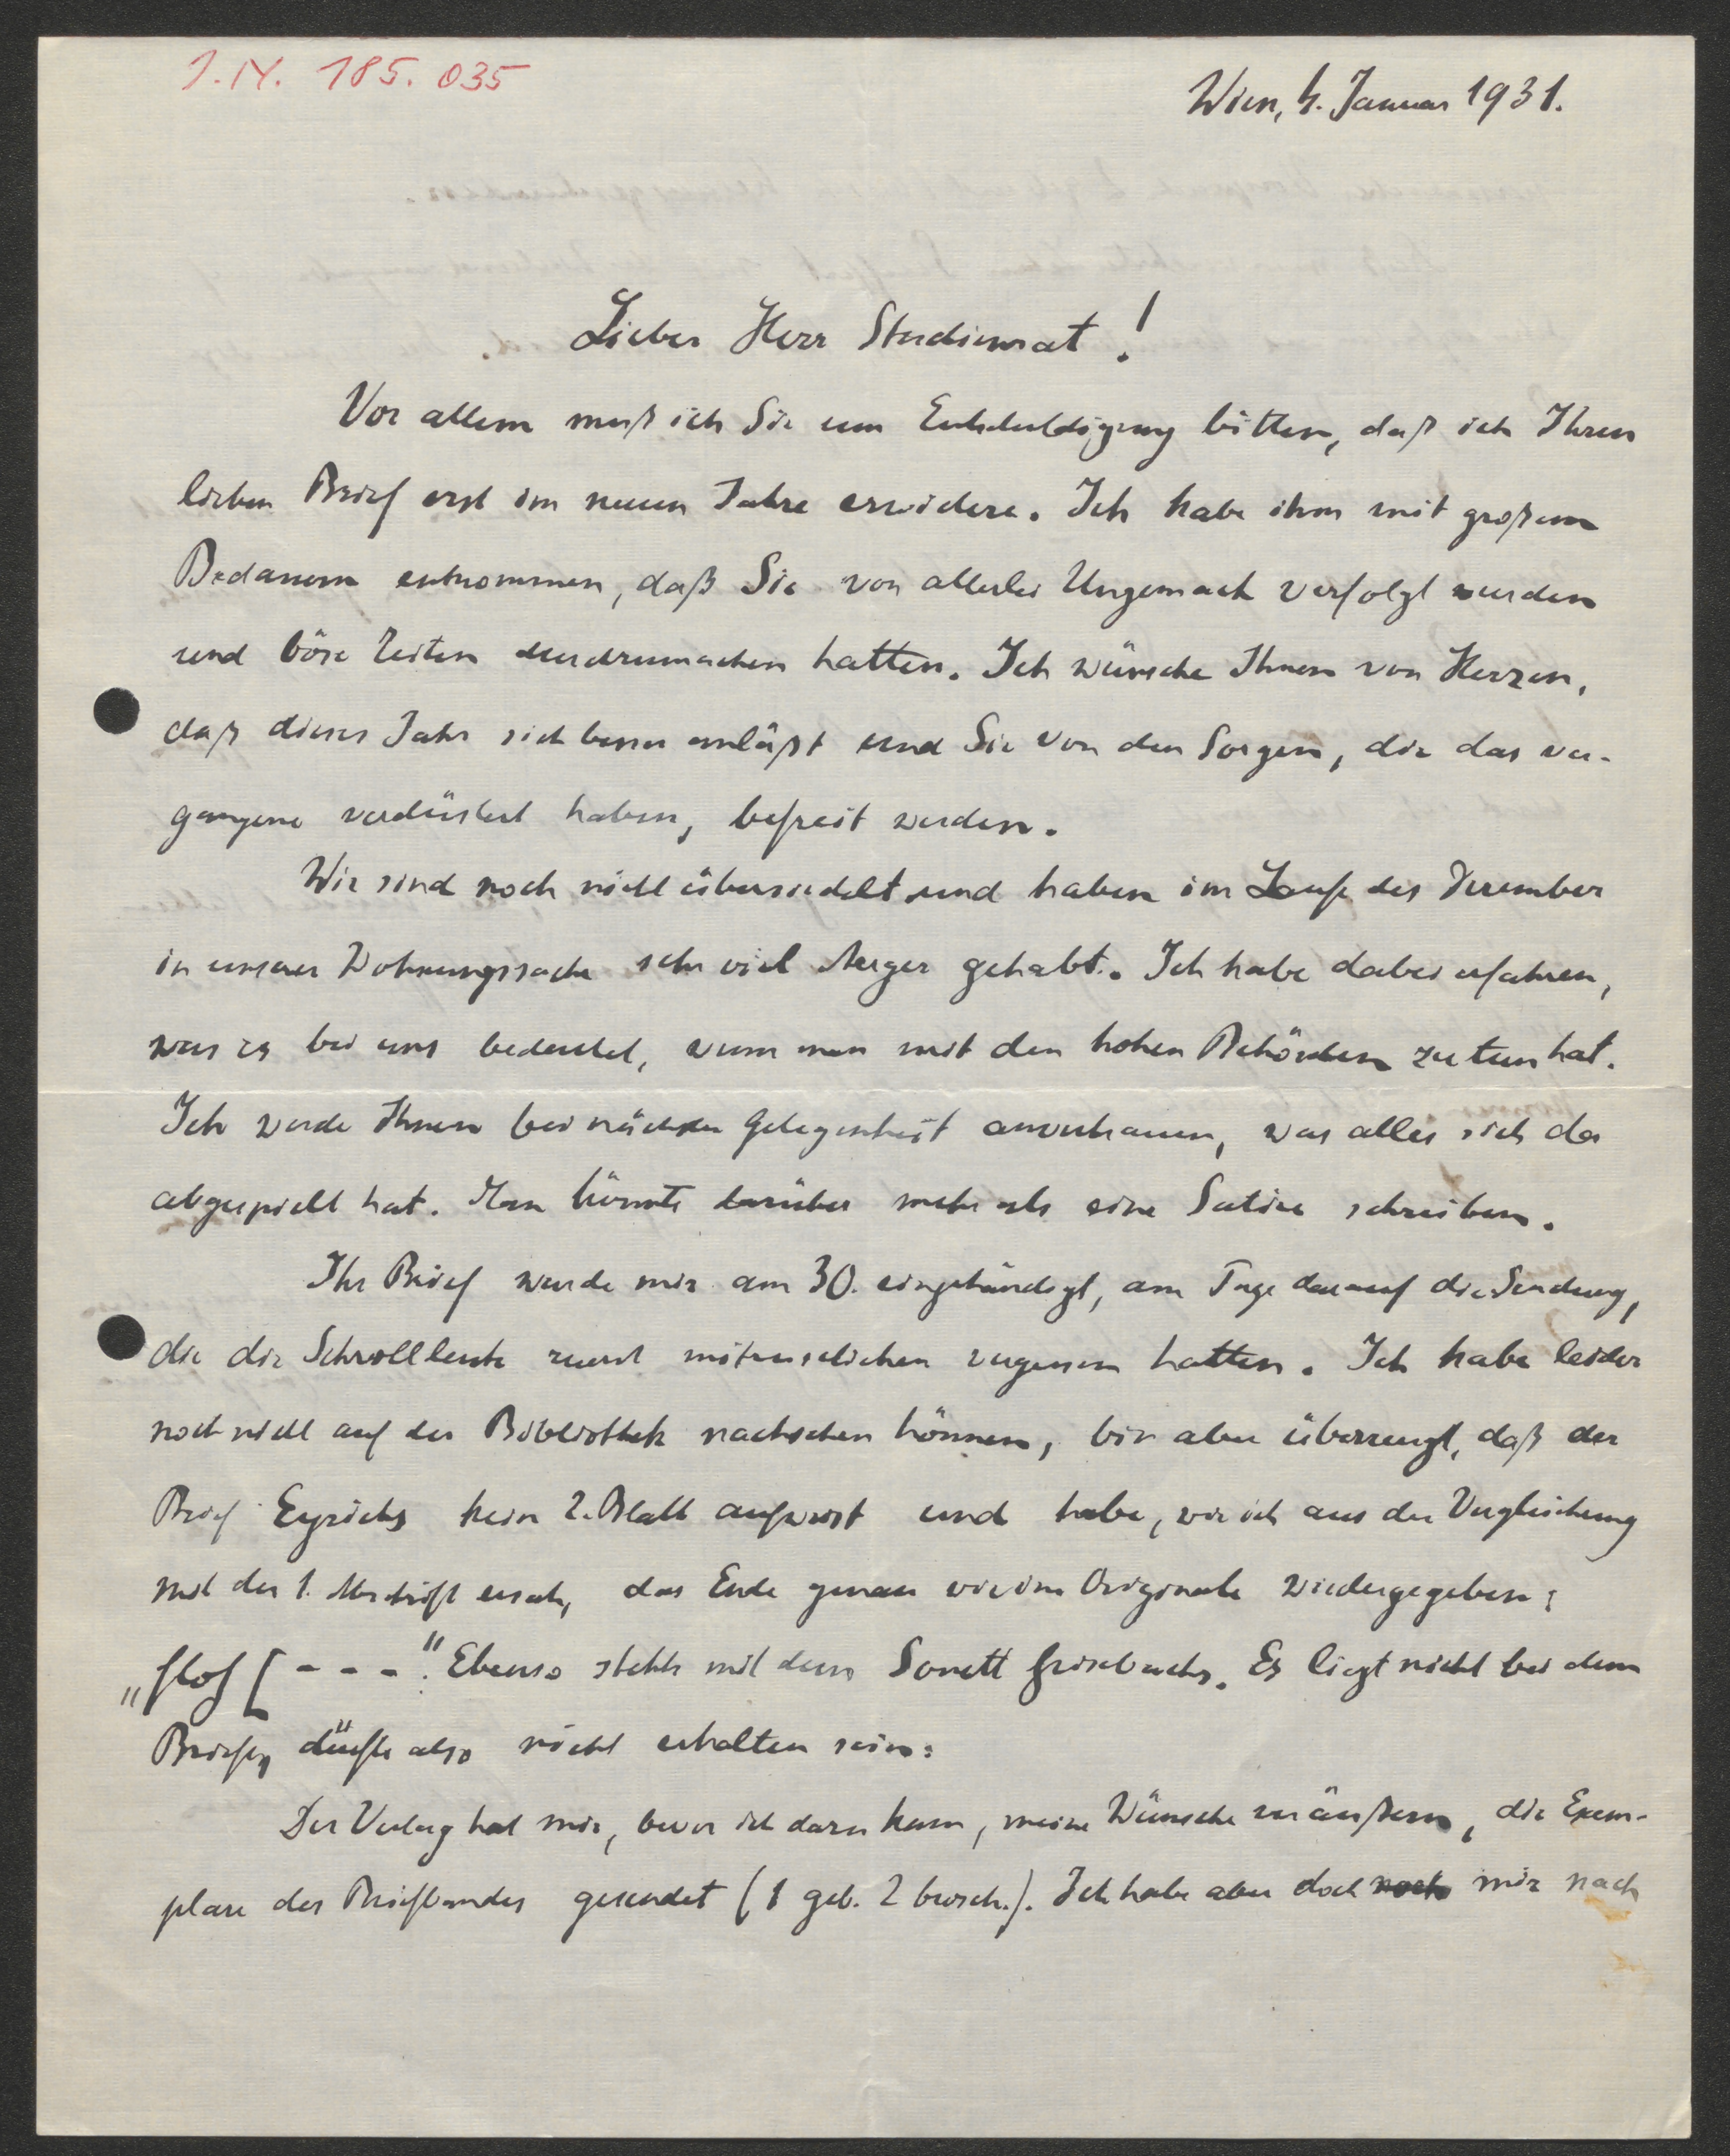 I.N. 185.035
Wien, 4. Januar 1931.
Lieber Herr Studienrat!
Vor allem muß ich Sie um Entschuldigung bitten, daß ich Ihren
lieben Brief erst im neuen Jahre erwidere. Ich habe ihm mit großem
Bedauern entnommen, daß Sie von allerlei Ungemach verfolgt wurden
und böse Zeiten durchzumachen hatten. Ich wünsche Ihnen von Herzen,
daß dieses Jahr sich besser anläßt und Sie von den Sorgen, die das ver-
gangene verdüstert haben, befreit werden.
Wir sind noch nicht übersiedelt und haben im Laufe des Dezember
in unserer Wohnungssache sehr viel Aerger gehabt. Ich habe dabei erfahren,
was es bei uns bedeutet, wenn man mit den hohen Behörden zu tun hat.
Ich werde Ihnen bei nächster Gelegenheit anvertrauen, was alles sich da
abgespielt hat. Man könnte darüber mehr als eine Satire schreiben.
Ihr Brief wurde mir am 30. eingehändigt, am Tage darauf die Sendung,
die die Schrolleute zuerst mitzuschicken vergessen hatten. Ich habe leider
noch nicht auf der Bibliothek nachsehen können, bin aber überzeugt, daß der
Brief Eyrichs kein 2. Blatt aufweist und habe, wie ich aus der Vergleichung
mit der 1. Abschrift ersah, das Ende genau wie im Originale wiedergegeben:
„flos [ - - - ". Ebenso stehts mit dem Sonett Grisebachs. Es liegt nicht bei dem
Briefe, dürfte also nicht erhalten sein.
Der Verlag hat mir, bevor ich dazu kam, meine Wünsche zu äußern, die Exem-
plare des Briefbandes gesendet (1 geb. 2 brosch.). Ich habe aber doch noch mir nach